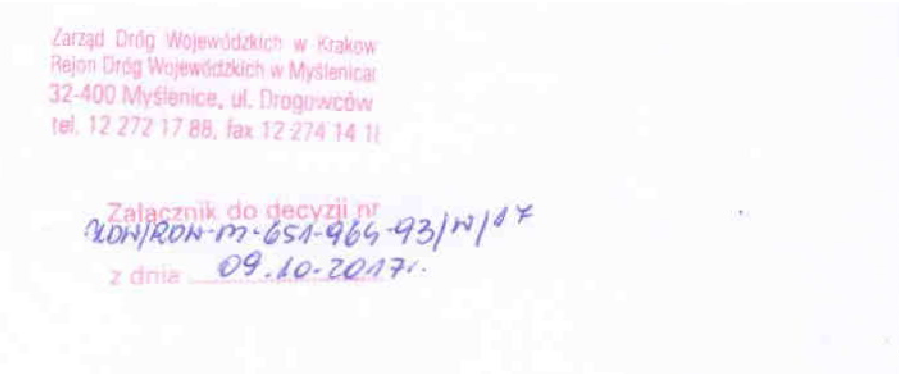 Zarząd Dróg Wojewódzkich w Krakow
Rejon Dróg Wojewódzkich w Myślenicac
32-400 Myślenice, ul. Drogowców
tel. 12 272 17 88, fax 12 274 14 18
Załącznik do decyzji nr
ZDW/RDW-M-651-964-93/W/17
z dnia 09.10.2017r.